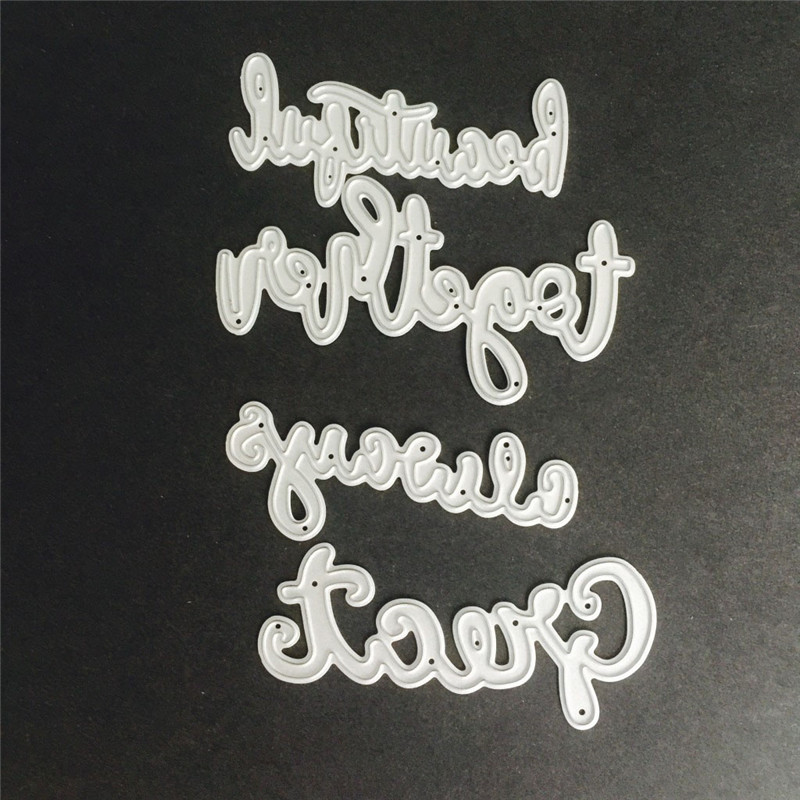 beautiful
together
always
Great